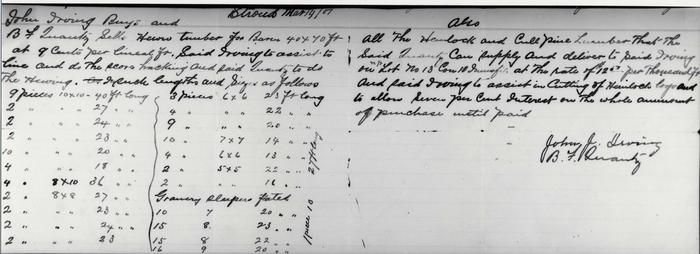 Stroud Mar 19/01
John Irving Buys and
B F Quantz Sells Hewn timber for Barn 40 x 70 ft
at 9 Cents per lineal ft, Said Irving to assist to
line and do the Scoring hacking and said Quantz to do
the Hewing. lengths and Sizes as follows
9 pieces 10 x 10 - 40 ft long
2 " " 27 " "
2 " " 24 " "
2 " " 23 " "
10 " " 20 " "
4 " " 18 " "
4 " 8 x 10 36 " "
2 " 8 x 8 27 " "
2 " " 23 " "
2 " " 24 " "
2 " " 23
3 pieces 6 x 6 23 ft long
4 " " 22 " "
9 " " 20 " "
10 " 7 x 7 14 " "
4 " 6 x 6 13 " "
2 " 5 x 5 22 " "
2 " " 16 " "
27 ft long
Granery sleepers fated
10 7 20 " "
15 8 23 " "
15 8 22 " "
16 9 20 " "
1 piece 10
Also
All The Hemlock and Cull pine Lumber that the
Said Quantz Can supply and deliver to said Irving
on Lot No 13 Con 10 Innisfil at the rate of per thousand ft
And said Irving to assist in Cutting of Hemlock logs and
to allow Seven per Cent Interest on the whole amount
of purchase until paid
John J. Irving
B. F. Quantz